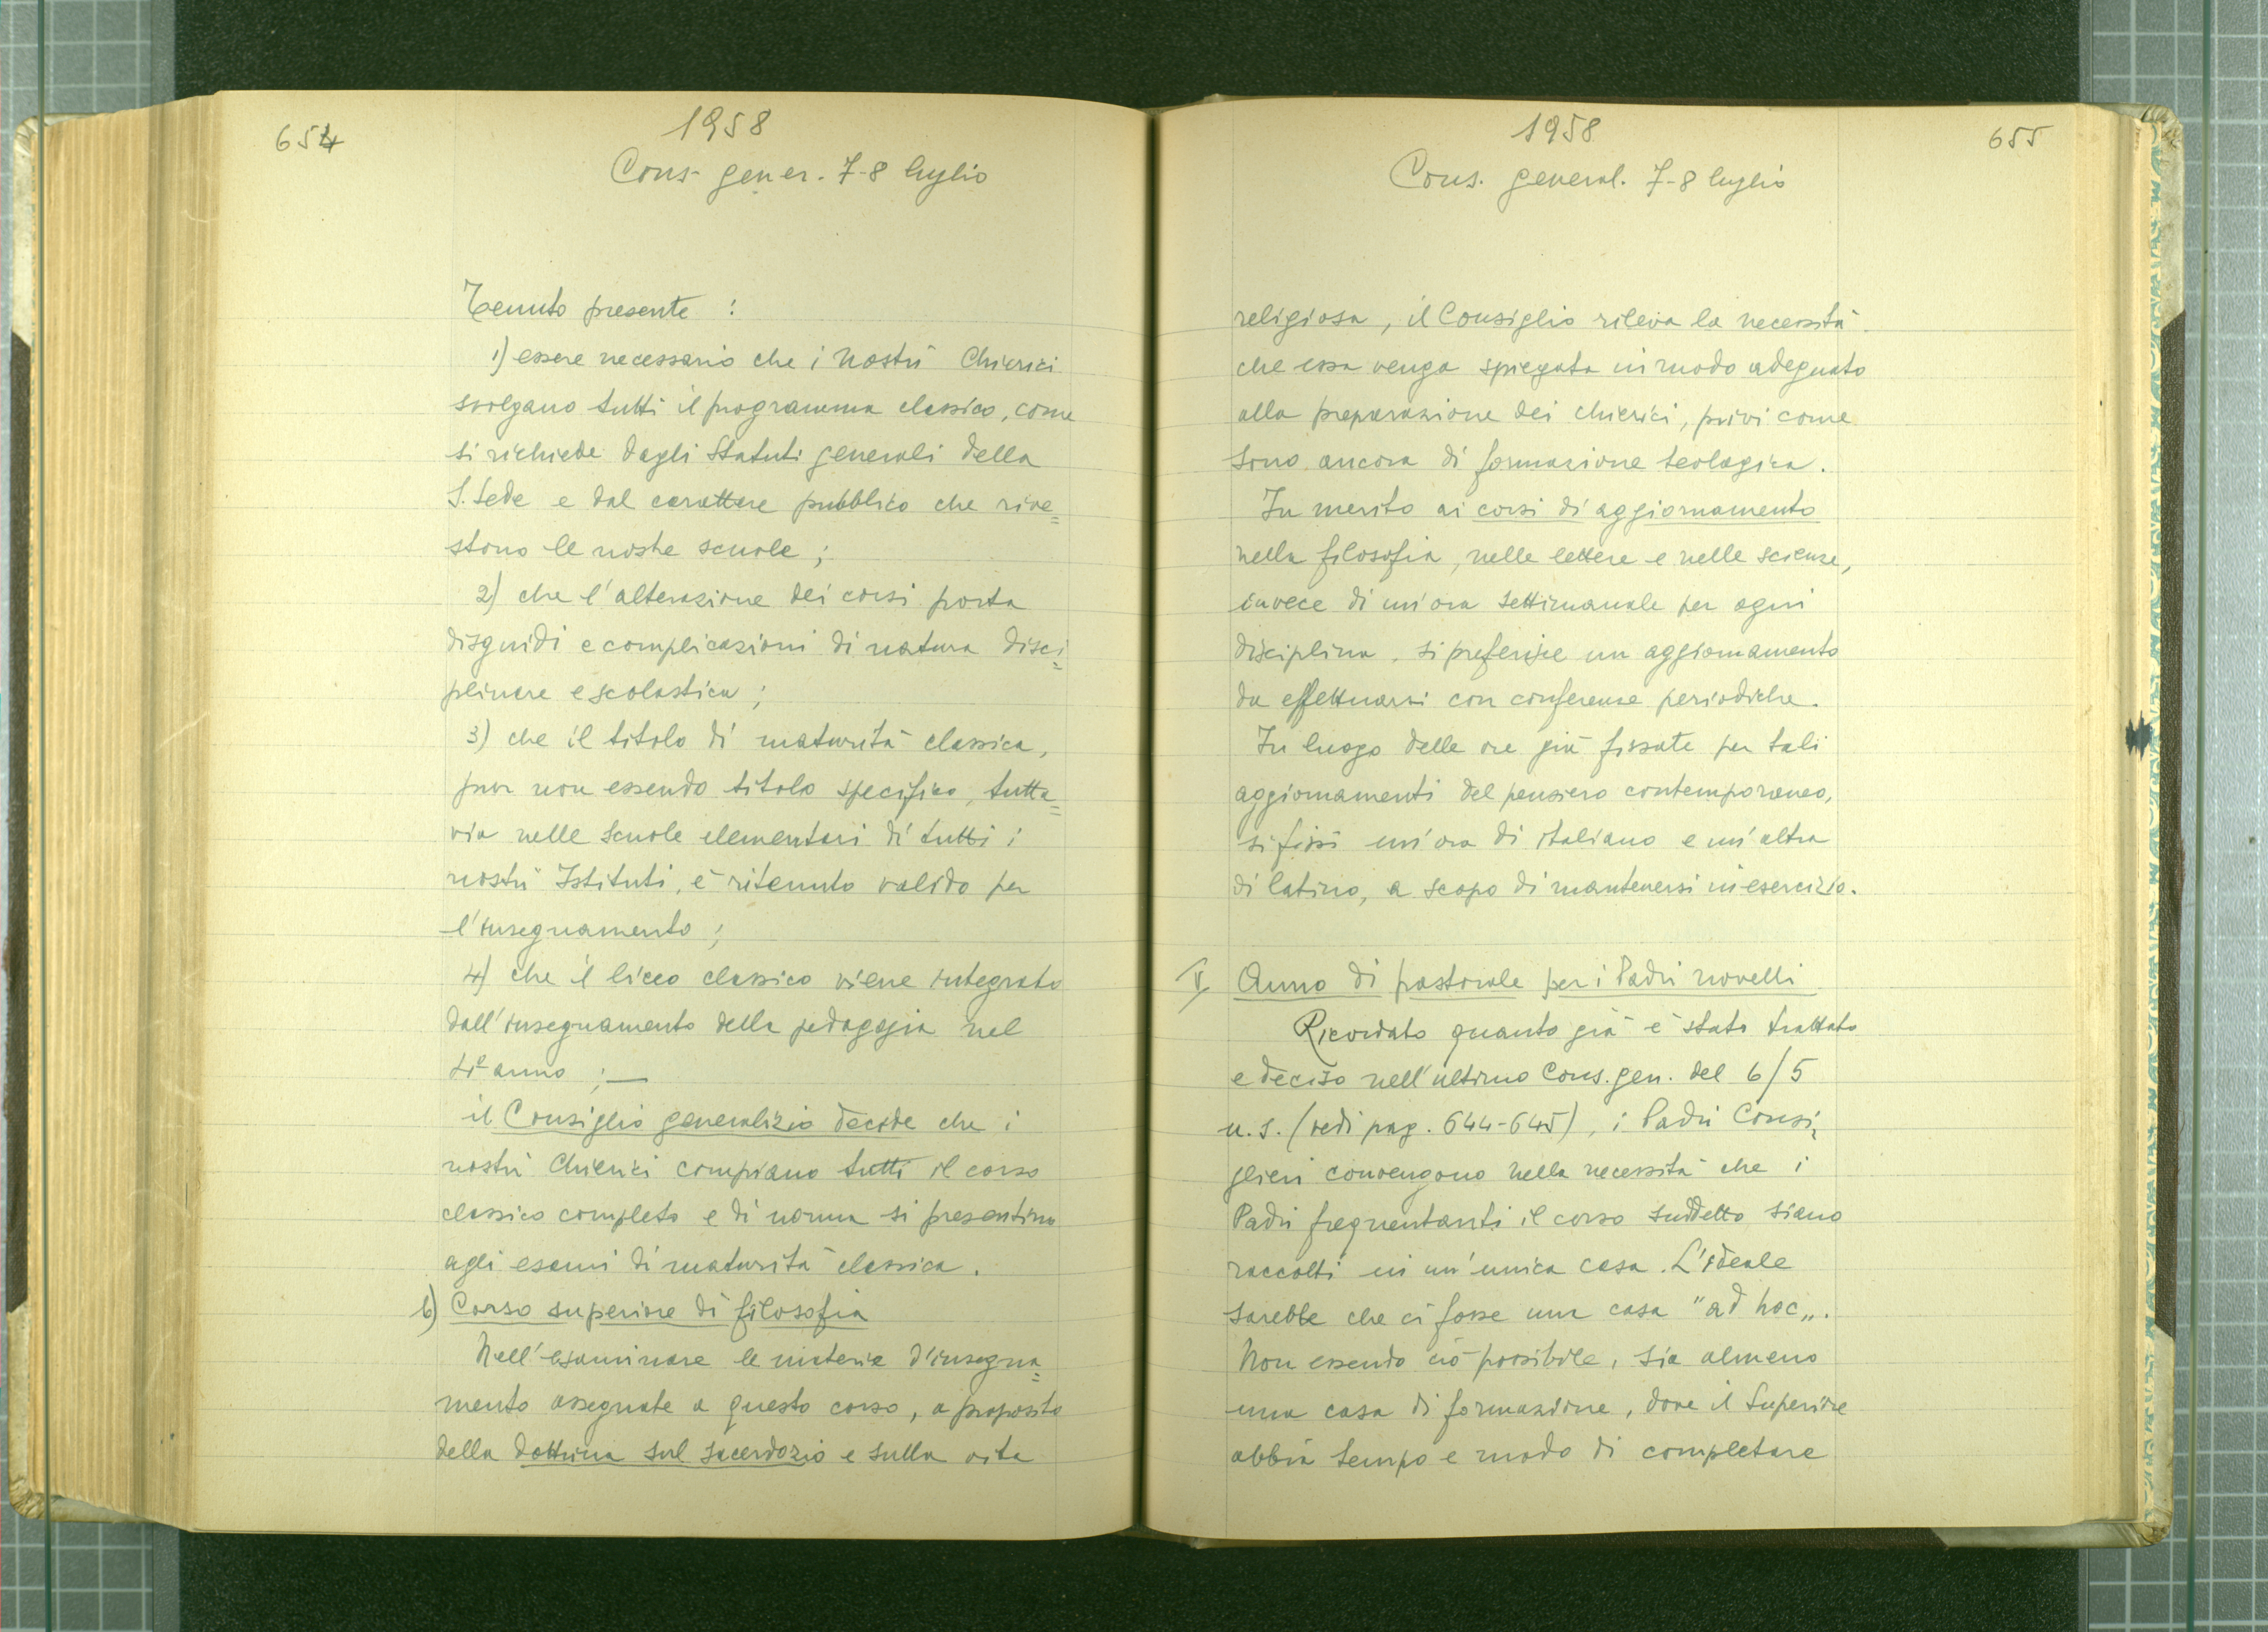 654
1958
Cons. gener. 7-8 luglio
Tenuto presente :
1) essere necessario che i nostri Chierici
svolgano tutti il programma classico, come
si richiede dagli Statuti generali della
S. Sede e dal carattere pubblico che rive=
stono le nostre scuole ;
2) che l'alterazione dei corsi porta
disguidi e complicazioni di natura disci=
plinare e scolastica ;
3) che il titolo di maturità classica,
pur non essendo titolo specifico, tutta=
via nelle scuole elementari di tutti i
nostri Istituti, è ritenuto valido per
l'insegnamento ;
4) che il liceo classico viene integrato
dall'insegnamento della pedagogia nel
4º anno ; —
il Consiglio generalizio decide che i
nostri Chierici compiano tutti il corso
classico completo e di norma si presentino
agli esami di maturità classica.
b) Corso superiore di filosofia
Nell'esaminare le materie d'insegna=
mento assegnate a questo corso, a proposito
della dottrina sul sacerdozio e sulla vita
1958
655
Cons. general. 7-8 luglio
religiosa, il Consiglio rileva la necessità
che essa venga spiegata in modo adeguato
alla preparazione dei chierici, privi come
sono ancora di formazione teologica.
In merito ai corsi di aggiornamento
nella filosofia, nelle lettere e nelle scienze,
invece di un'ora settimanale per ogni
disciplina, si preferisce un aggiornamento
da effettuarsi con conferenze periodiche.
In luogo delle ore già fissate per tali
aggiornamenti del pensiero contemporaneo,
si fissi un'ora di italiano e un'altra
di latino, a scopo di mantenersi in esercizio.
V Anno di pastorale per i Padri novelli
Ricordato quanto già è stato trattato
e deciso nell'ultimo Cons. gen. del 6/5
u.s. (vedi pag. 644-645), i Padri Consi=
glieri convengono nella necessità che i
Padri frequentanti il corso suddetto siano
raccolti in un'unica casa. L'ideale
sarebbe che ci fosse una casa "ad hoc„.
Non essendo ciò possibile, sia almeno
una casa di formazione, dove il Superiore
abbia tempo e modo di completare